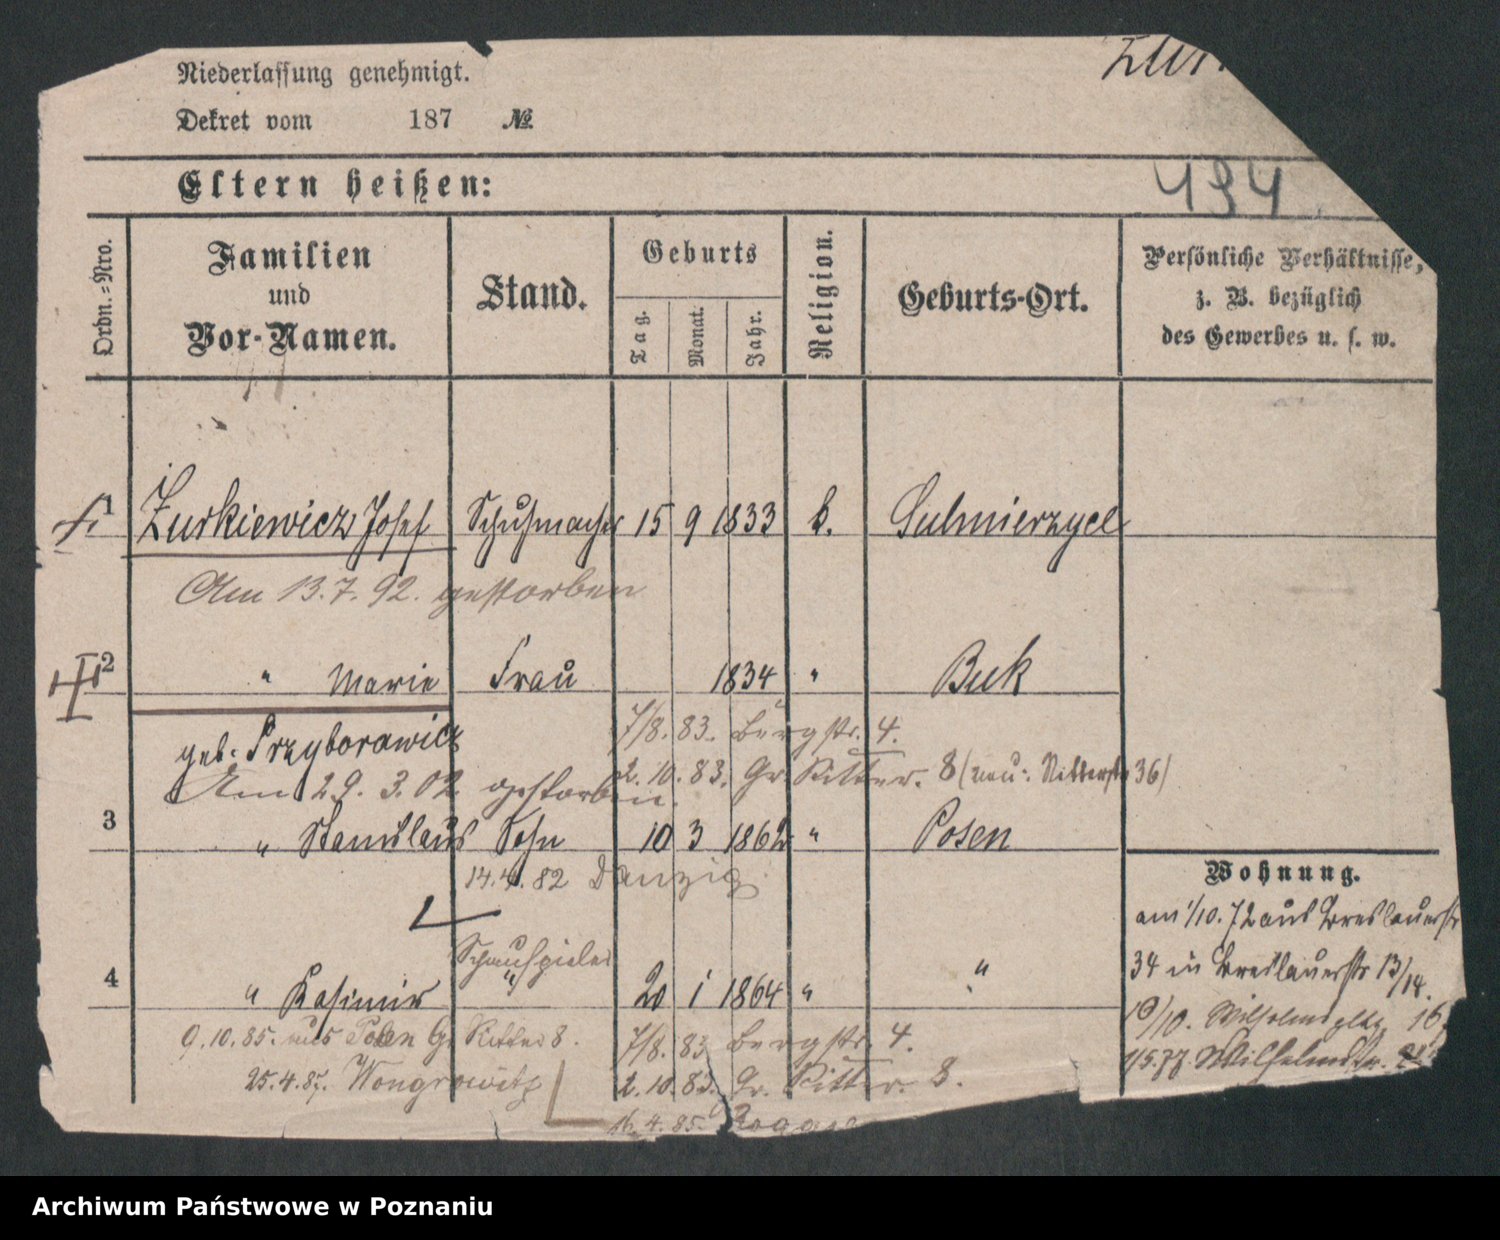 Niederlassung genehmigt.
Dekret vom 187 №
Zur
494
Eltern heißen:
Ordn.-Nro.
Familien und Vor-Namen.
Stand.
Geburts
Tag.
Monat.
Jahr.
Religion.
Geburts-Ort.
Persönliche Verhältnisse,
z. B. bezüglich
des Gewerbes u. s. w.
1 Żurkiewicz Josef Schuhmacher 15 9 1833 k. Sulmierzyce
Am 13.7.92. gestorben
2 " Marie Frau 1834 " Buk
7/8. 83. Bergstr. 4.
geb. Przyborowicz
2.10.83. Gr. Ritter. 8 (neu: Ritterstr 36)
Am 29.3.02. gestorben.
3 " Stanislaus Sohn 10 3 1862 " Posen
14.4.82 Danzig
Wohnung.
am 1/10. 72 aus Breslauerstr
34 in Breslauerstr 13/14.
Schauspieler
4 " Kasimir " 20 1 1864 " "
19/10. Wilhelmsplatz 16,
9.10.85. aus Posen Gr Ritter 8.
7/8. 83 Bergstr. 4.
1/5.77 Wilhelmstr.
25.4.87. Wongrowitz
2.10.83. Gr. Ritter. 8.
16.4.85.